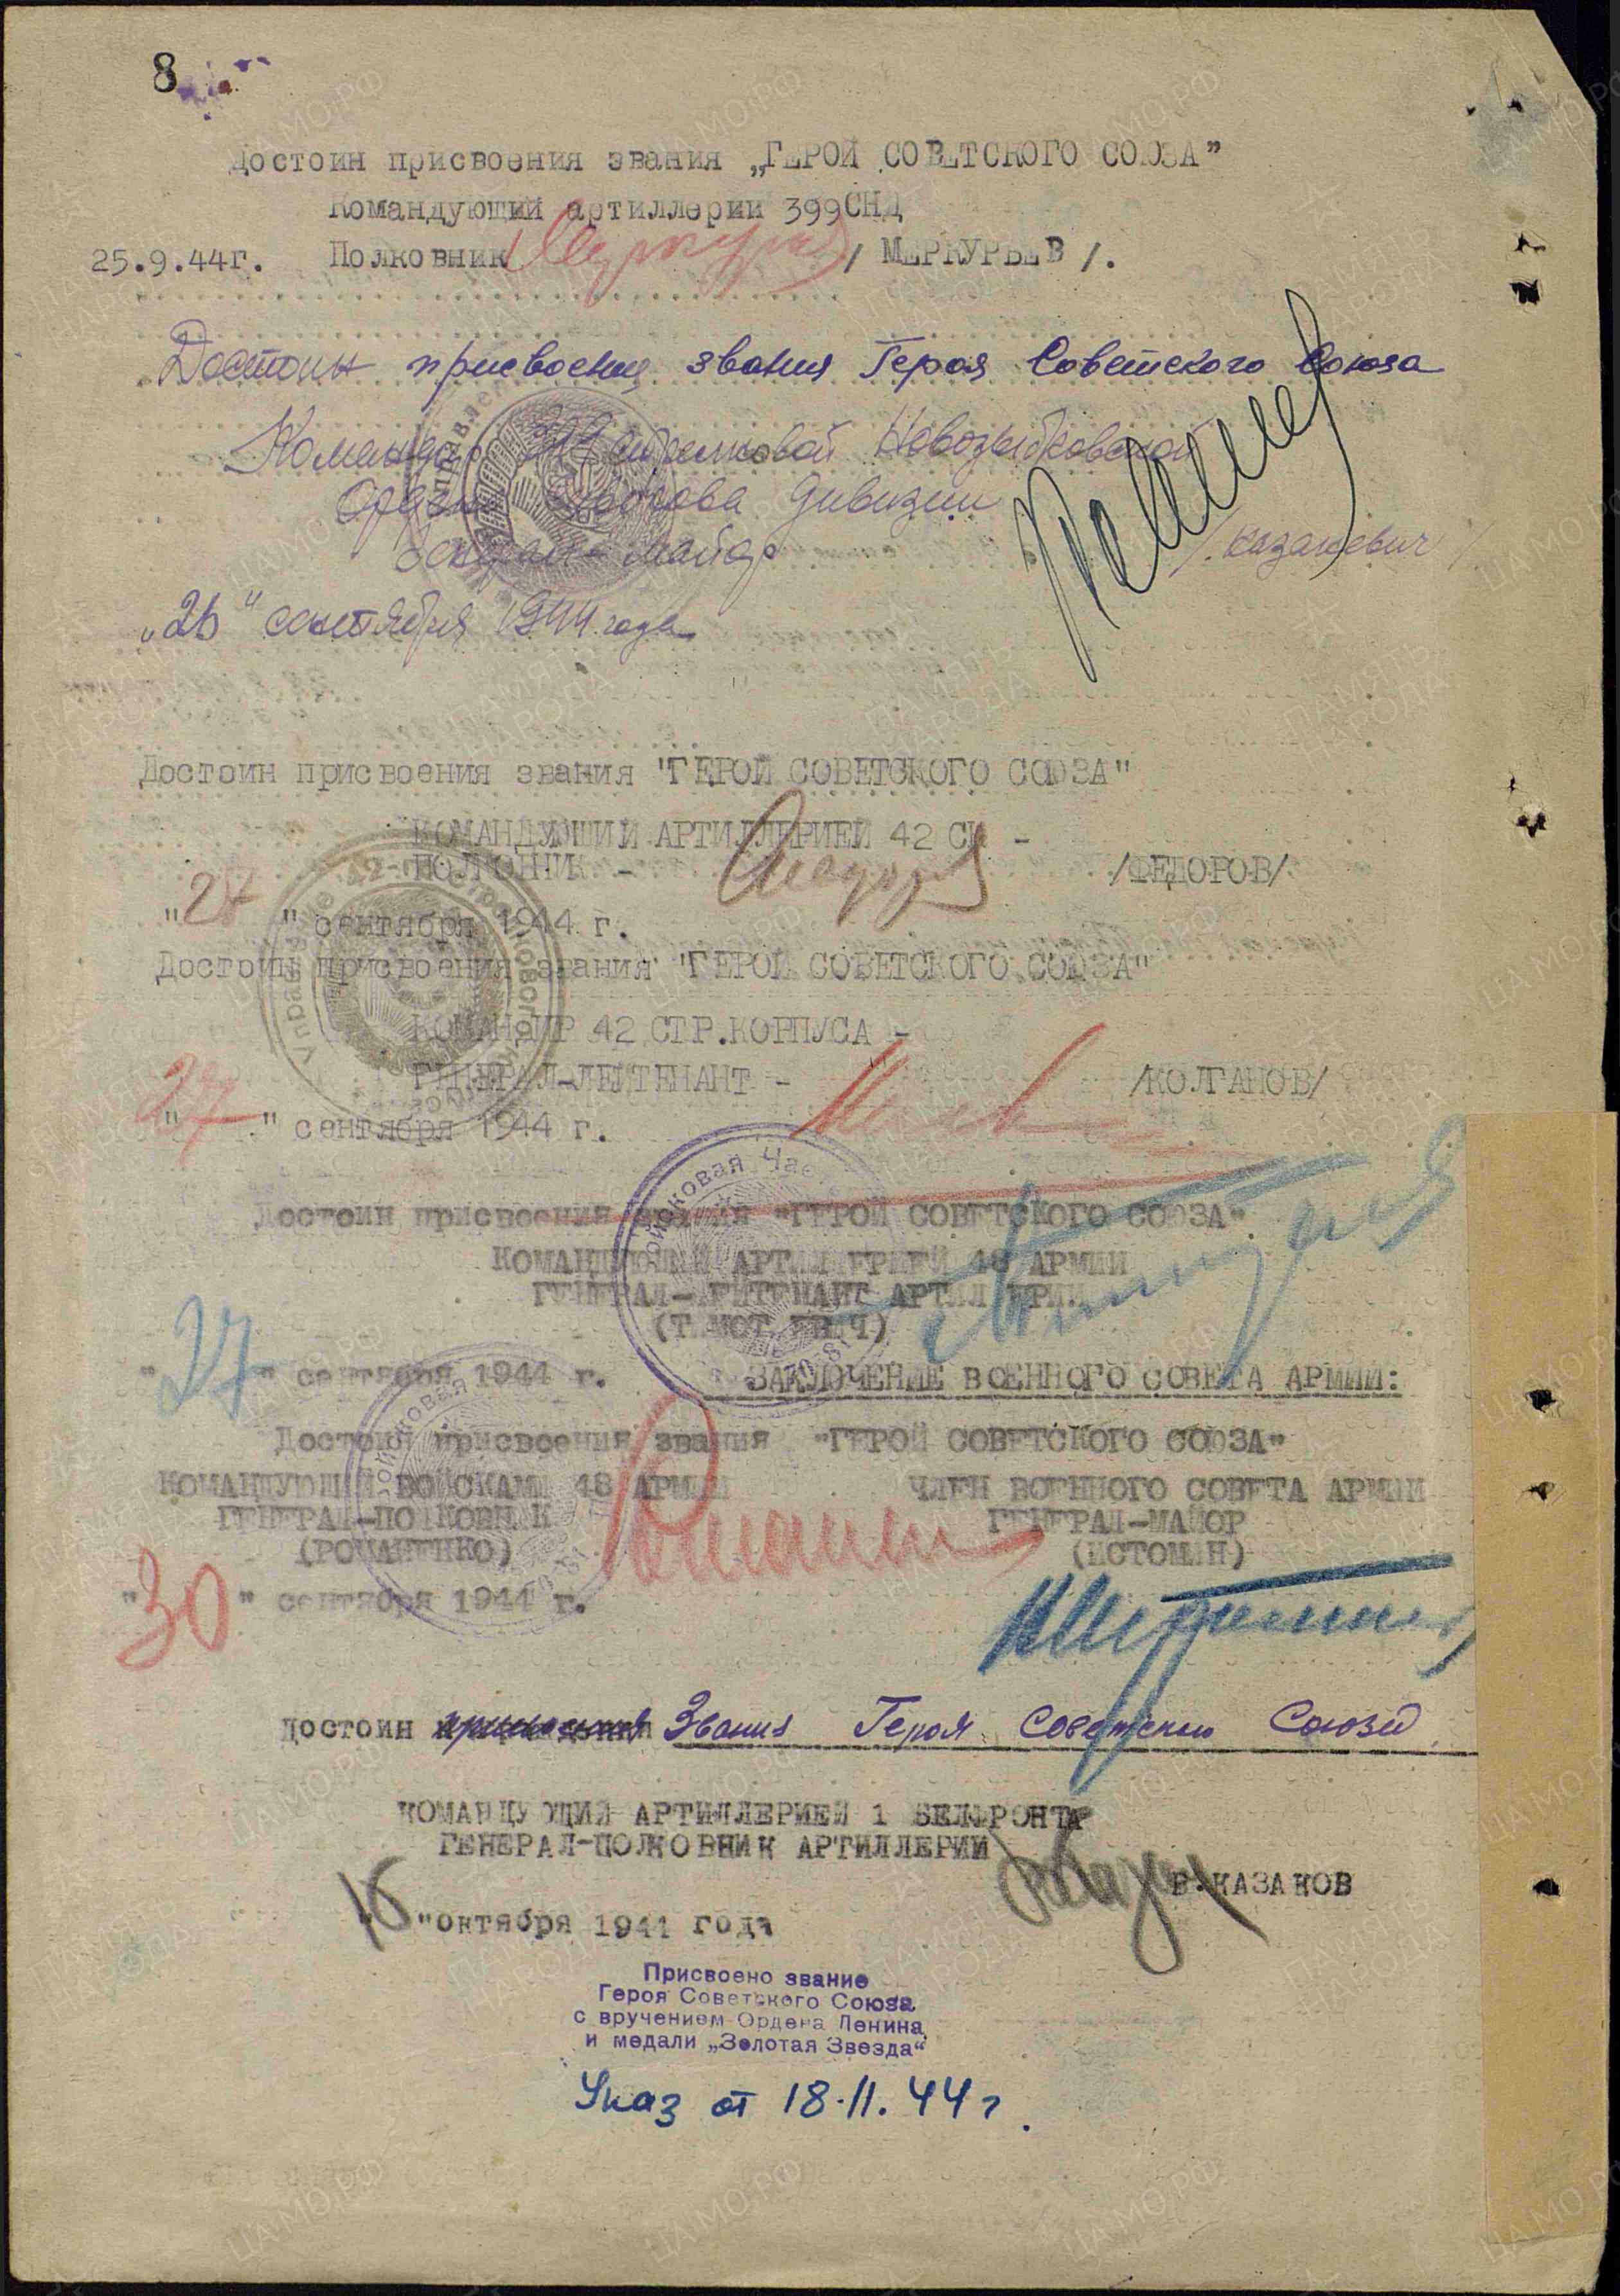 8
Достоин присвоения звания „ГЕРОЙ СОВЕТСКОГО СОЮЗА”
Командующий артиллерии 399СНД
25.9.44г. Полковник / МЕРКУРЬЕВ /.
Достоин присвоения звания Героя Советского Союза
Командир 399 стрелковой Новозыбковской
Ордена Суворова дивизии
Генерал-майор /Казакевич/
„26" сентября 1944 года
Достоин присвоения звания "ГЕРОЙ СОВЕТСКОГО СОЮЗА"
КОМАНДУЮЩИЙ АРТИЛЛЕРИЕЙ 42 СК -
ПОЛКОВНИК - /ФЕДОРОВ/
"27" сентября 1944 г.
Достоин присвоения звания "ГЕРОЙ СОВЕТСКОГО СОЮЗА"
КОМАНДИР 42 СТР.КОРПУСА -
ГЕНЕРАЛ-ЛЕЙТЕНАНТ - /КОЛГАНОВ/
"27" сентября 1944 г.
Достоин присвоения звания "ГЕРОЙ СОВЕТСКОГО СОЮЗА"
КОМАНДУЮЩИЙ АРТИЛЛЕРИЕЙ 48 АРМИИ
ГЕНЕРАЛ-ЛЕЙТЕНАНТ АРТИЛЛЕРИИ
(ТИМОТИЕВИЧ)
"27" сентября 1944 г.
ЗАКЛЮЧЕНИЕ ВОЕННОГО СОВЕТА АРМИИ:
Достоин присвоения звания "ГЕРОЙ СОВЕТСКОГО СОЮЗА"
КОМАНДУЮЩИЙ ВОЙСКАМИ 48 АРМИИ ЧЛЕН ВОЕННОГО СОВЕТА АРМИИ
ГЕНЕРАЛ-ПОЛКОВНИК ГЕНЕРАЛ-МАЙОР
(РОМАНЕНКО) (ИСТОМИН)
"30" сентября 1944 г.
достоин Звания Героя Советского Союза
КОМАНДУЮЩИЙ АРТИЛЛЕРИЕЙ 1 БЕЛФРОНТА
ГЕНЕРАЛ-ПОЛКОВНИК АРТИЛЛЕРИИ
В.КАЗАКОВ
"16"октября 1944 года
Присвоено звание
Героя Советского Союза
с вручением Ордена Ленина
и медали „Золотая Звезда“
Указ от 18.11.44г.